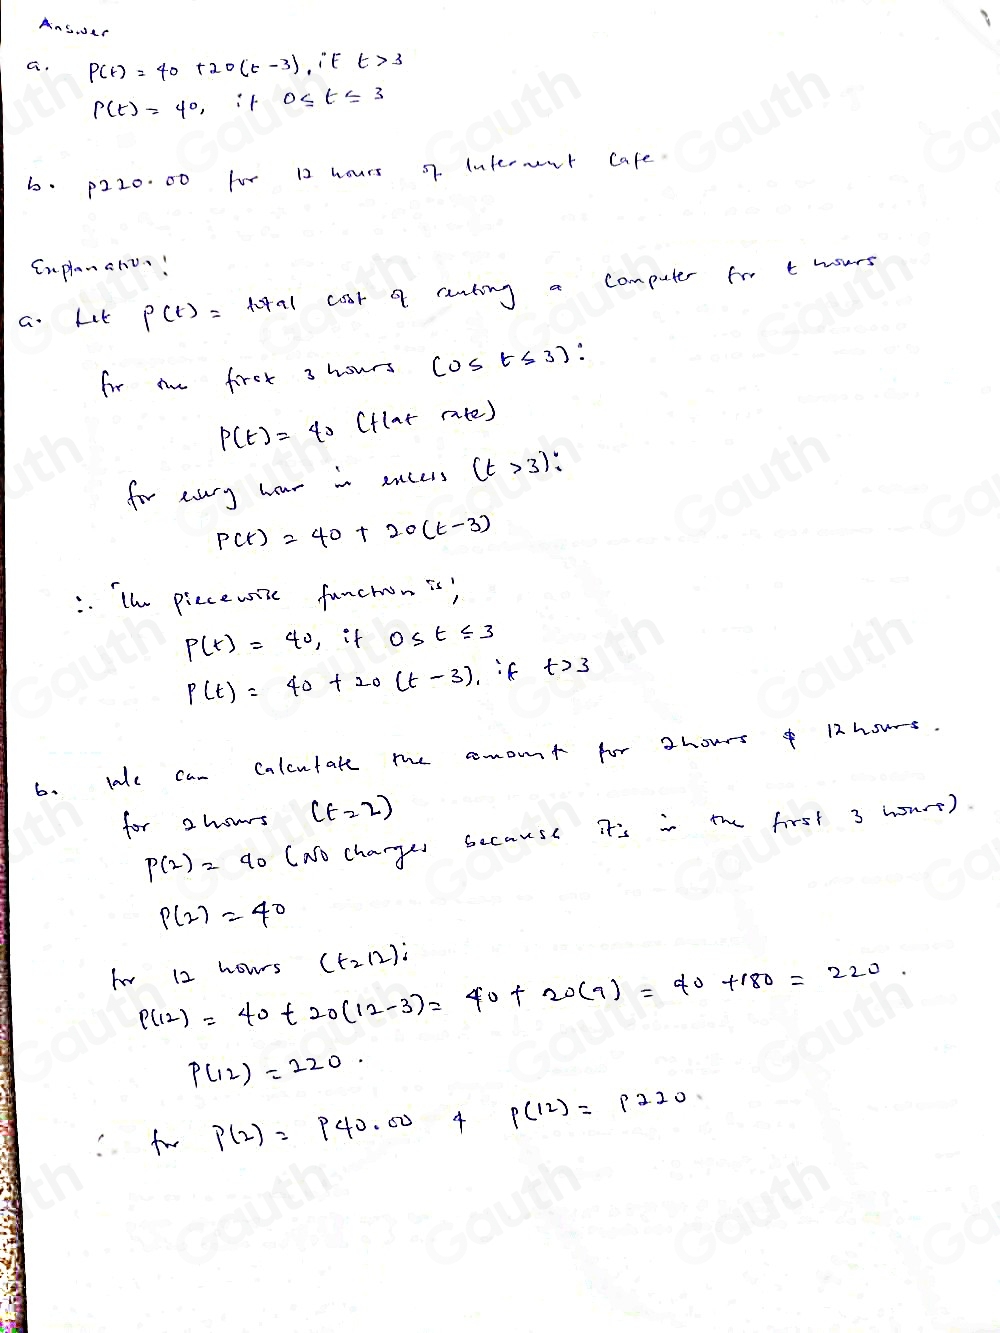 Answer
a. P(t) = 40 + 20(t - 3), if t > 3
P(t) = 40, if 0 ≤ t ≤ 3
b. P220.00 for 12 hours of Internent Cafe.
Explanation:
a. Let P(t) = total cost of renting a computer for t hours
for the first 3 hours (0 ≤ t ≤ 3):
P(t) = 40 (flat rate)
for every hour in excess (t > 3):
P(t) = 40 + 20(t - 3)
∴ The piecewise function is;
P(t) = 40, if 0 ≤ t ≤ 3
P(t) = 40 + 20(t - 3), if t > 3
b. We can calculate the amount for 2 hours & 12 hours.
for 2 hours (t = 2)
P(2) = 40 (No charges because it's in the first 3 hours).
P(2) = 40
for 12 hours (t = 12):
P(12) = 40 + 20(12 - 3) = 40 + 20(9) = 40 + 180 = 220.
P(12) = 220.
∴ for P(2) = P40.00 & P(12) = P220.